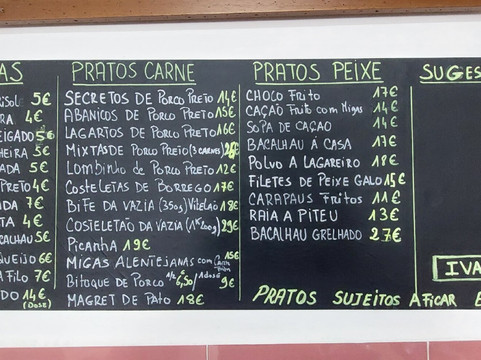 AS
ISOL 5€
RA 4€
EIGADO 5€
HEIRA 5€
ADA 5€
PRETO 4€
DA 7€
TA 4€
CALHAU 5€
QUEIJO 6€
A FILO 7€
DO 14€
(DOSE)
PRATOS CARNE
SECRETOS DE PORCO PRETO 14€
ABANICOS DE PORCO PRETO 15€
LAGARTOS DE PORCO PRETO 16€
MIXTAS DE PORCO PRETO (3 CARNES)
LOMBINHO DE PORCO PRETO 12€
COSTELETAS DE BORREGO 17€
BIFE DA VAZIA (350g) VITELÃO 18€
COSTELETÃO DA VAZIA 29€
PICANHA 19€
MIGAS ALENTEJANAS COM 15€
BITOQUE DE PORCO 1/2 6,50/ 1 DOSE 9€
MAGRET DE PATO 18€
PRATOS PEIXE
CHOCO FRITO 17€
CAÇÃO FRITO COM MIGAS 14€
SOPA DE CAÇAO 14€
BACALHAU Á CASA 17€
POLVO A LAGAREIRO 18€
FILETES DE PEIXE GALO 15€
CARAPAUS FRITOS 11€
RAIA A PITEU 13€
BACALHAU GRELHADO 27€
PRATOS SUJEITOS A FICAR E
SUGES
IVA